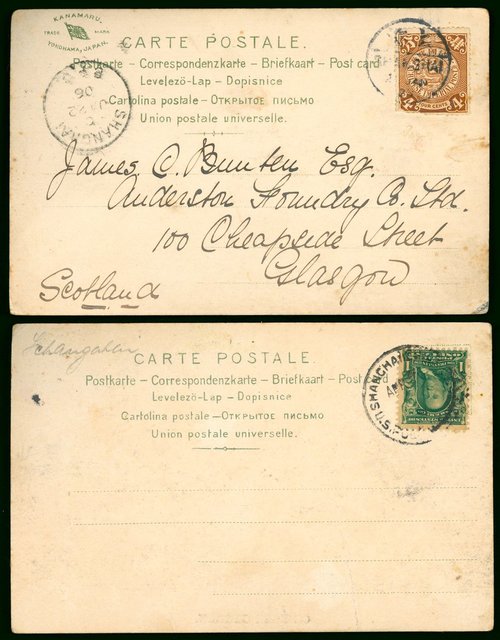 KANAMARU.
TRADE MARK
YOKOHAMA, JAPAN.
CARTE POSTALE.
Postkarte – Correspondenzkarte – Briefkaart – Post card
Levelező-Lap – Dopisnice
Cartolina postale – Открытое письмо
Union postale universelle.
SHANGHAI
FOUR CENTS
James C. Bunten Esq.
Anderston Foundry Co. Ltd.
100 Cheapside Street
Glasgow
Scotland
CARTE POSTALE.
Postkarte – Correspondenzkarte – Briefkaart – Post card
Levelező-Lap – Dopisnice
Cartolina postale – Открытое письмо
Union postale universelle.
SHANGHAI